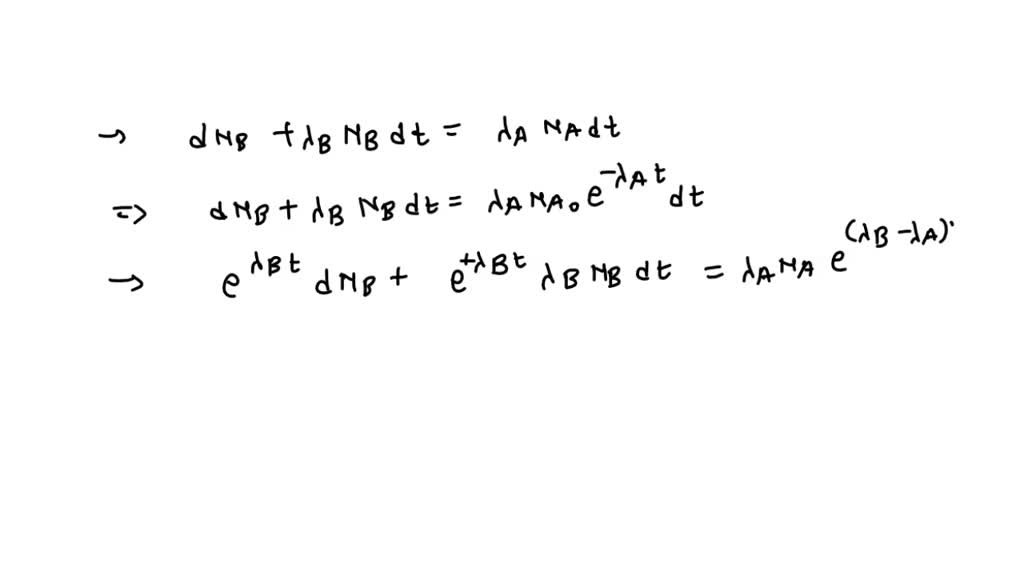 → dN_B + λ_B N_B dt = λ_A N_A dt
⇒ dN_B + λ_B N_B dt = λ_A N_A₀ e^{-λ_A t} dt
→ e^{λ_B t} dN_B + e^{+λ_B t} λ_B N_B dt = λ_A N_A e^{(λ_B - λ_A)}